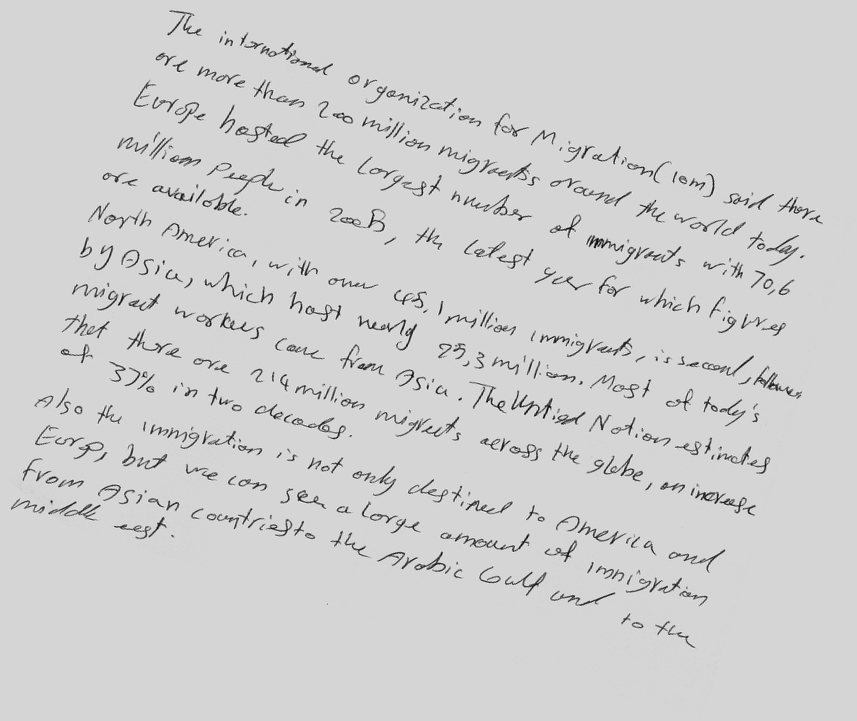 The international organization for Migration (IOM) said there
are more than 200 million migrants around the world today.
Europe hosted the Largest number of immigrants with 70,6
million People in 2005, the latest year for which figures
are available.
North America, with over 45,1 million immigrants, is second, follower
by Asia, which host nearly 25,3 million. Most of today's
migrant workers come from Asia. The United Nation estimates
that there are 214 million migrants across the globe, an increase
of 37% in two decades.
Also the immigration is not only destined to America and
Europ, but we can see a large amount of immigration
from Asian countries to the Arabic Gulf and to the
middle east.